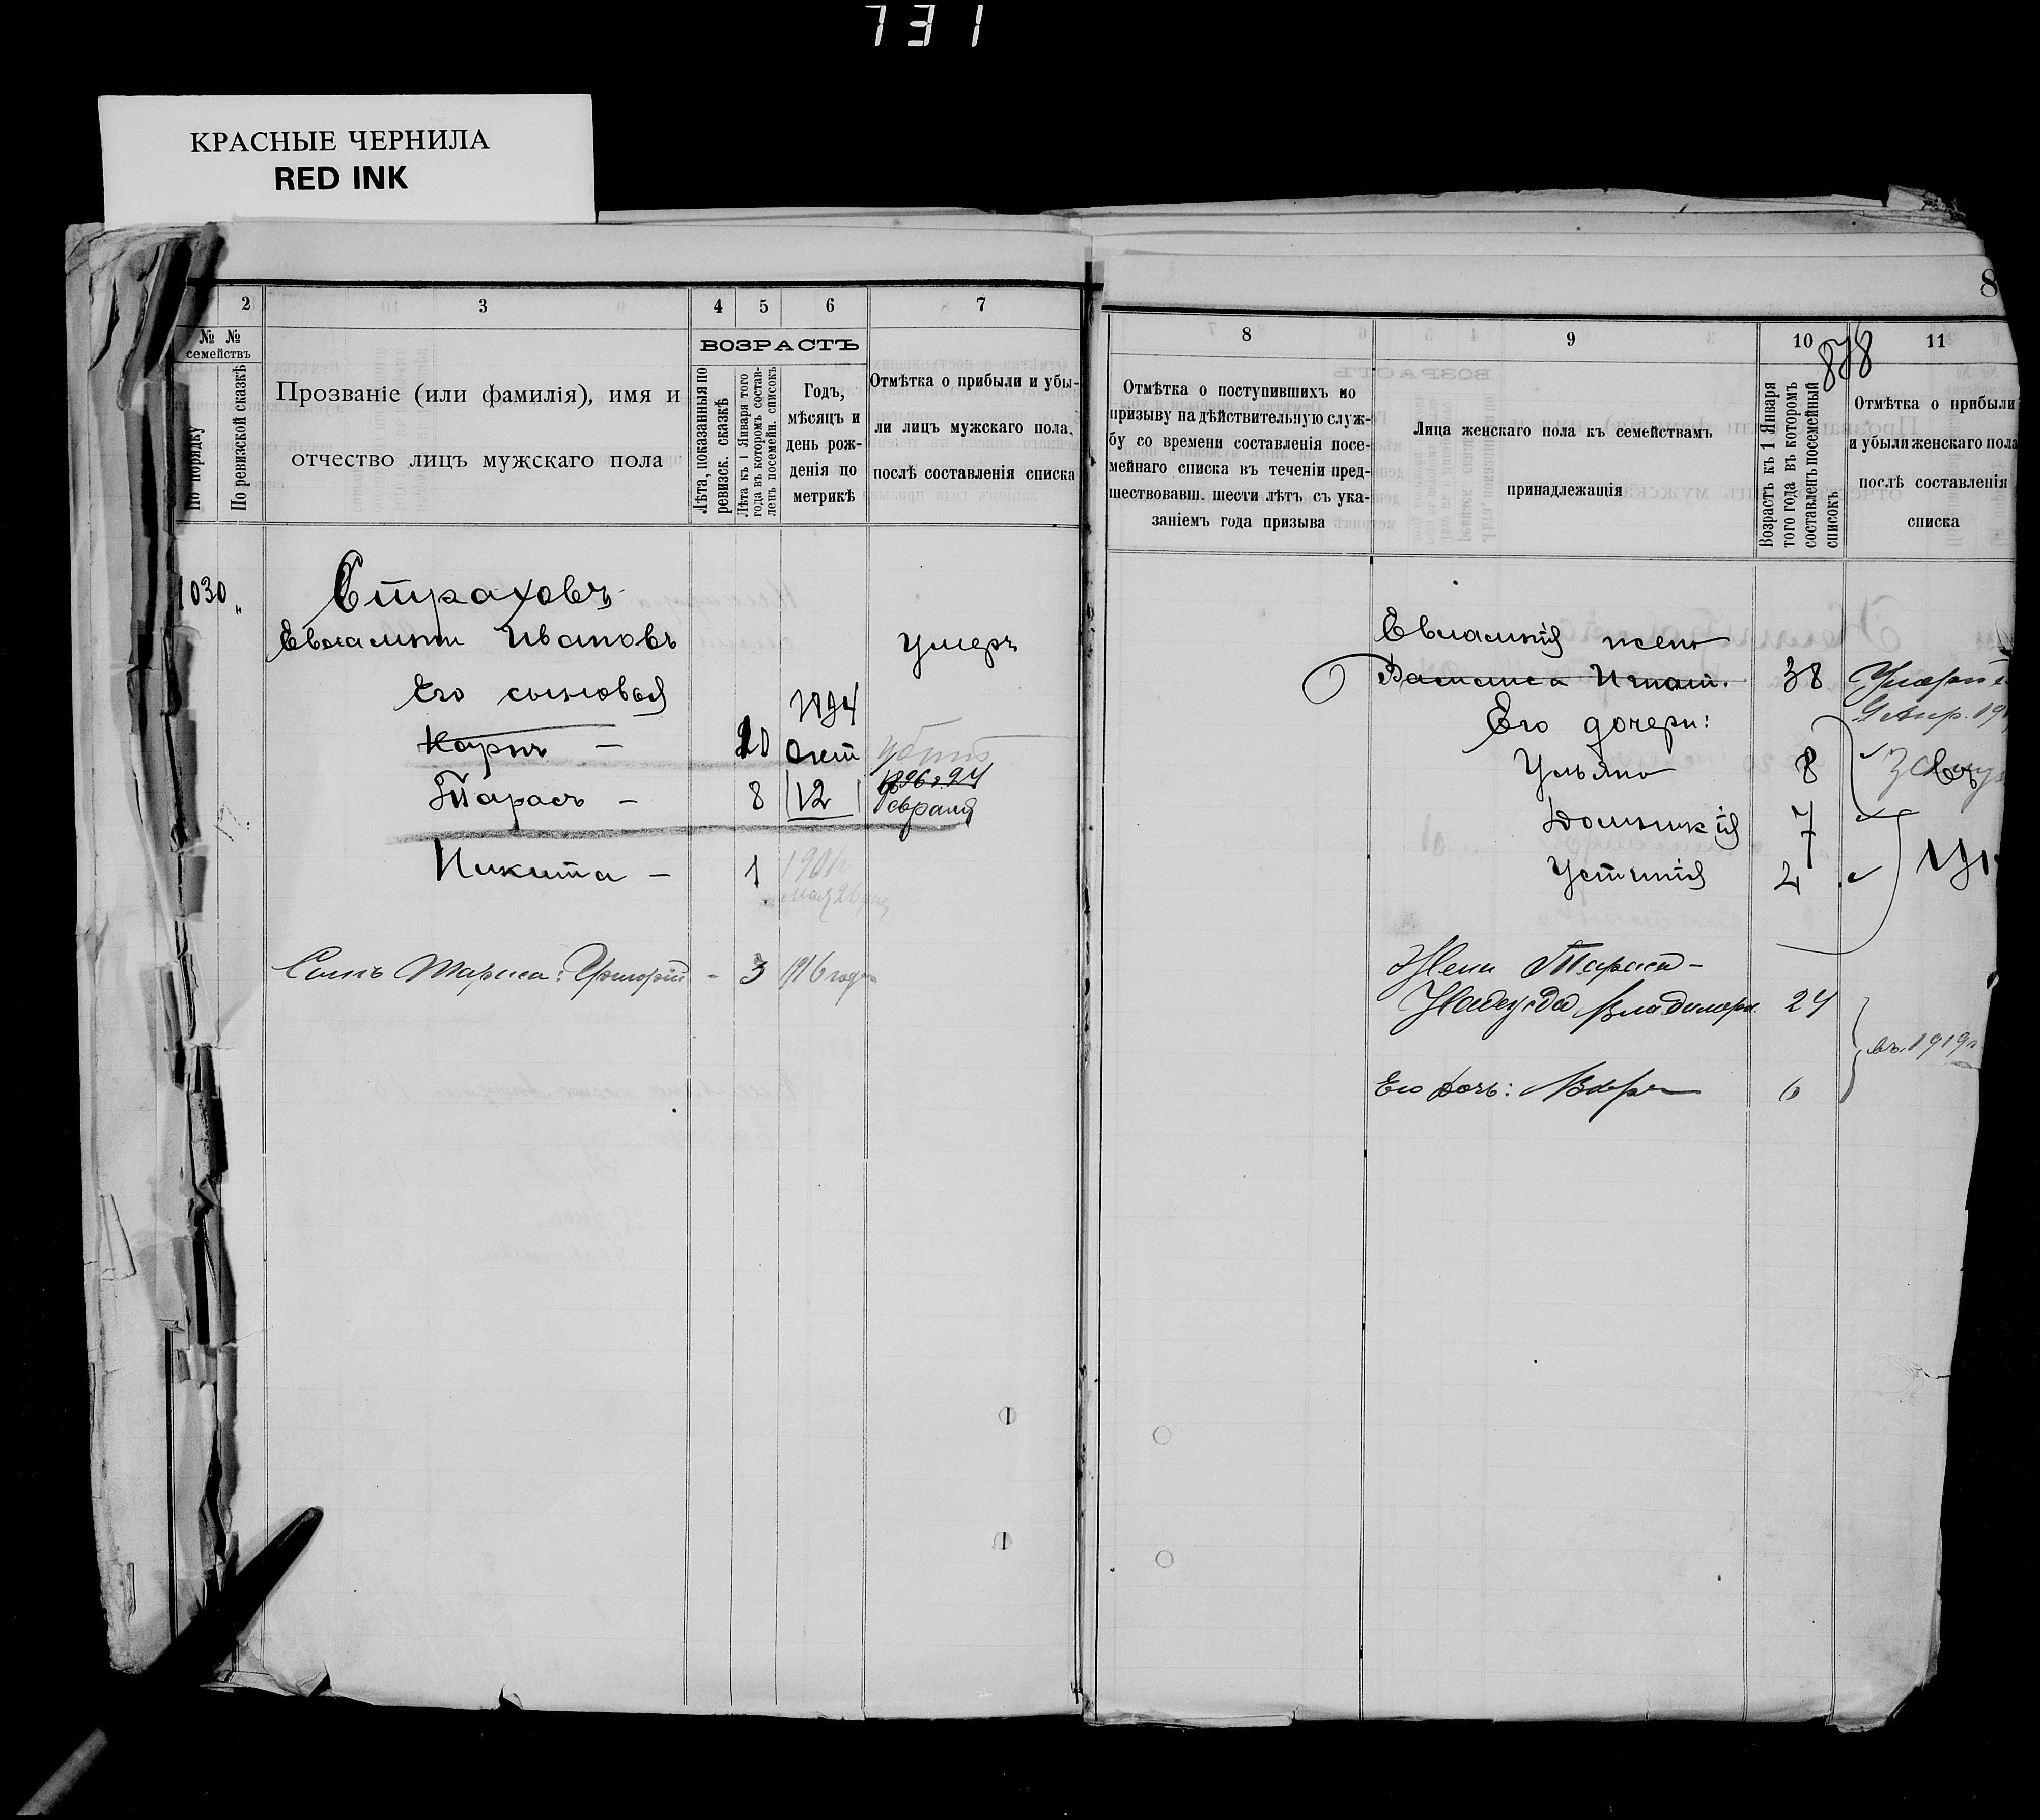 731
КРАСНЫЕ ЧЕРНИЛА
RED INK
2
3
4
5
6
7
№ №
семействъ
По порядку
По ревизской сказкѣ
Прозваніе (или фамилія), имя и
отчество лицъ мужскаго пола
ВОЗРАСТЪ
Лѣта, показанныя по
ревизск. сказкѣ
Лѣта къ 1 Января того
года въ которомъ состав-
ленъ посемейн. списокъ
Годъ,
мѣсяцъ и
день рож-
денія по
метрикѣ
Отмѣтка о прибыли и убы-
ли лицъ мужскаго пола,
послѣ составленія списка
1030 „
Страховъ
Евлампи Ивановъ
Умеръ
Его сыновья
1894
Карпъ — 20 Окт убитъ
Тарасъ — 8 12
Февраля
Никита — 1
Сынъ Тараса: Григорій - 3 1916 года
8
8
9
10
11
878
Отмѣтка о поступившихъ по
призыву на дѣйствительную служ-
бу со времени составленія посе-
мейнаго списка въ теченіи пред-
шествовавш. шести лѣтъ съ ука-
заніемъ года призыва
Лица женскаго пола къ семействамъ
принадлежащія
Возрастъ къ 1 Января
того года въ которомъ
составленъ посемейный
списокъ
Отмѣтка о прибыли
и убыли женскаго пола
послѣ составленія
списка
Евлампія жена
Василиса Игнат. 38
Его дочери:
Ульяна 8
Домникія 7
Устинія 4
Жена Тараса —
Надежда Владимиров. 24
въ 1919г
Его дочь: Вѣра 6